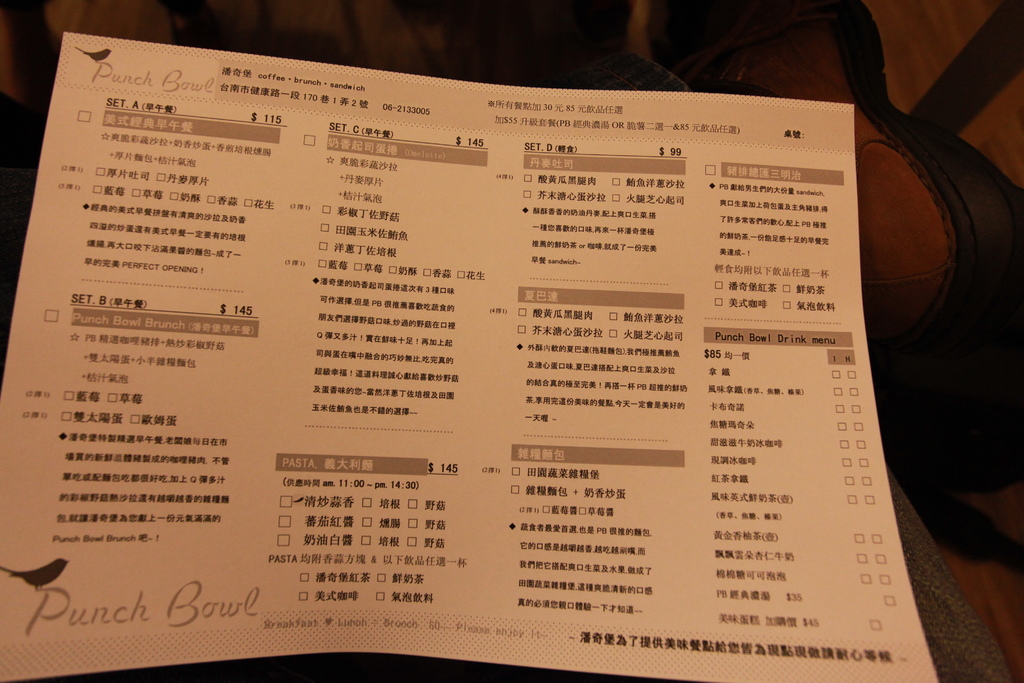 Punch Bowl
潘奇堡 coffee・brunch・sandwich
台南市健康路一段170巷1弄2號 06-2133005
※所有餐點加30元 85元飲品任選
加$55升級套餐(PB 經典濃湯 OR 脆薯二選一&85元飲品任選)
桌號:
SET. A (早午餐) $ 115
□ 美式經典早午餐
☆爽脆彩蔬沙拉+奶香炒蛋+香煎培根燻腸
+厚片麵包+桔汁氣泡
(2擇1) □厚片吐司 □丹麥厚片
(5擇1) □藍莓 □草莓 □奶酥 □香蒜 □花生
◆經典的美式早餐拼盤有清爽的沙拉及奶香
四溢的炒蛋還有美式早餐一定要有的培根
燻腸,再大口咬下沾滿果醬的麵包~成了一
早的完美 PERFECT OPENING!
SET. B (早午餐) $ 145
□ Punch Bowl Brunch (潘奇堡早午餐)
☆ PB 精選咖哩豬排+熱炒彩椒野菇
+雙太陽蛋+小半雜糧麵包
+桔汁氣泡
(2擇1) □藍莓 □草莓
(2擇1) □雙太陽蛋 □歐姆蛋
◆潘奇堡特製精選早午餐,老闆娘每日在市
場買的新鮮溫體豬製成的咖哩豬肉,不管
單吃或配麵包吃都很好吃,加上Q彈多汁
的彩椒野菇熱沙拉還有越嚼越香的雜糧麵
包,就讓潘奇堡為您獻上一份元氣滿滿的
Punch Bowl Brunch 吧~!
Punch Bowl
SET. C (早午餐) $ 145
□ 奶香起司蛋捲 (Omelette)
☆ 爽脆彩蔬沙拉
+丹麥厚片
+桔汁氣泡
(3擇1) □ 彩椒丁佐野菇
□ 田園玉米佐鮪魚
□ 洋蔥丁佐培根
(5擇1) □藍莓 □草莓 □奶酥 □香蒜 □花生
◆潘奇堡的奶香起司蛋捲這次有3種口味
可作選擇,但是PB很推薦喜歡吃蔬食的
朋友們選擇野菇口味,炒過的野菇在口裡
Q彈又多汁!實在鮮味十足!再加上起
司與蛋在嘴中融合的巧妙無比,吃完真的
超級幸福!這道料理誠心獻給喜歡炒野菇
及蛋香味的您~當然洋蔥丁佐培根及田園
玉米佐鮪魚也是不錯的選擇~~
PASTA. 義大利麵 $ 145
(供應時間 am. 11:00 ~ pm. 14:30)
□ 清炒蒜香 □ 培根 □ 野菇
□ 蕃茄紅醬 □ 燻腸 □ 野菇
□ 奶油白醬 □ 培根 □ 野菇
PASTA 均附香蒜方塊 & 以下飲品任選一杯
□ 潘奇堡紅茶 □ 鮮奶茶
□ 美式咖啡 □ 氣泡飲料
SET. D (輕食) $ 99
丹麥吐司
(4擇1) □ 酸黃瓜黑腿肉 □ 鮪魚洋蔥沙拉
□ 芥末溏心蛋沙拉 □ 火腿芝心起司
◆ 酥酥香香的奶油丹麥,配上爽口生菜,搭
一種您喜歡的口味,再來一杯潘奇堡極
推薦的鮮奶茶 or 咖啡,就成了一份完美
早餐 sandwich~
夏巴達
(4擇1) □ 酸黃瓜黑腿肉 □ 鮪魚洋蔥沙拉
□ 芥末溏心蛋沙拉 □ 火腿芝心起司
◆ 外酥內軟的夏巴達(拖鞋麵包),我們極推薦鮪魚
及溏心蛋口味,夏巴達搭配上爽口生菜及沙拉
的結合真的極至完美!再搭一杯PB超推的鮮奶
茶,享用完這份美味的餐點,今天一定會是美好的
一天喔 ~
雜糧麵包
(2擇1) □ 田園蔬菜雜糧堡
□ 雜糧麵包 + 奶香炒蛋
(2擇1) □藍莓醬 □草莓醬
◆ 蔬食者最愛首選,也是PB很推的麵包,
它的口感是越嚼越香,越吃越涮嘴,而
我們把它搭配爽口生菜及水果,做成了
田園蔬菜雜糧堡,這種爽脆清新的口感
真的必須您親口體驗一下才知道~~
□ 豬排總匯三明治
◆ PB 獻給男生們的大份量 sandwich,
爽口生菜加上荷包蛋及主角豬排,得
了許多常客們的歡心,配上PB極推
的鮮奶茶,一份飽足感十足的早餐完
美達成~!
輕食均附以下飲品任選一杯
□ 潘奇堡紅茶 □ 鮮奶茶
□ 美式咖啡 □ 氣泡飲料
Punch Bowl Drink menu
$85 均一價 I H
拿 鐵 □ □
風味拿鐵(香草、焦糖、榛果) □ □
卡布奇諾 □ □
焦糖瑪奇朵 □ □
甜滋滋牛奶冰咖啡 □
現調冰咖啡 □
紅茶拿鐵 □ □
風味英式鮮奶茶(壺) □ □
(香草、焦糖、榛果)
黃金香柚茶(壺) □ □
飄飄雲朵杏仁牛奶 □ □
棉棉糖可可泡泡 □ □
PB 經典濃湯 $35 □
美味蛋糕 加購價 $45 □
Breakfast ♥ Lunch - Brunch SO~ Please enjoy it~
~ 潘奇堡為了提供美味餐點給您皆為現點現做請耐心等候 ~